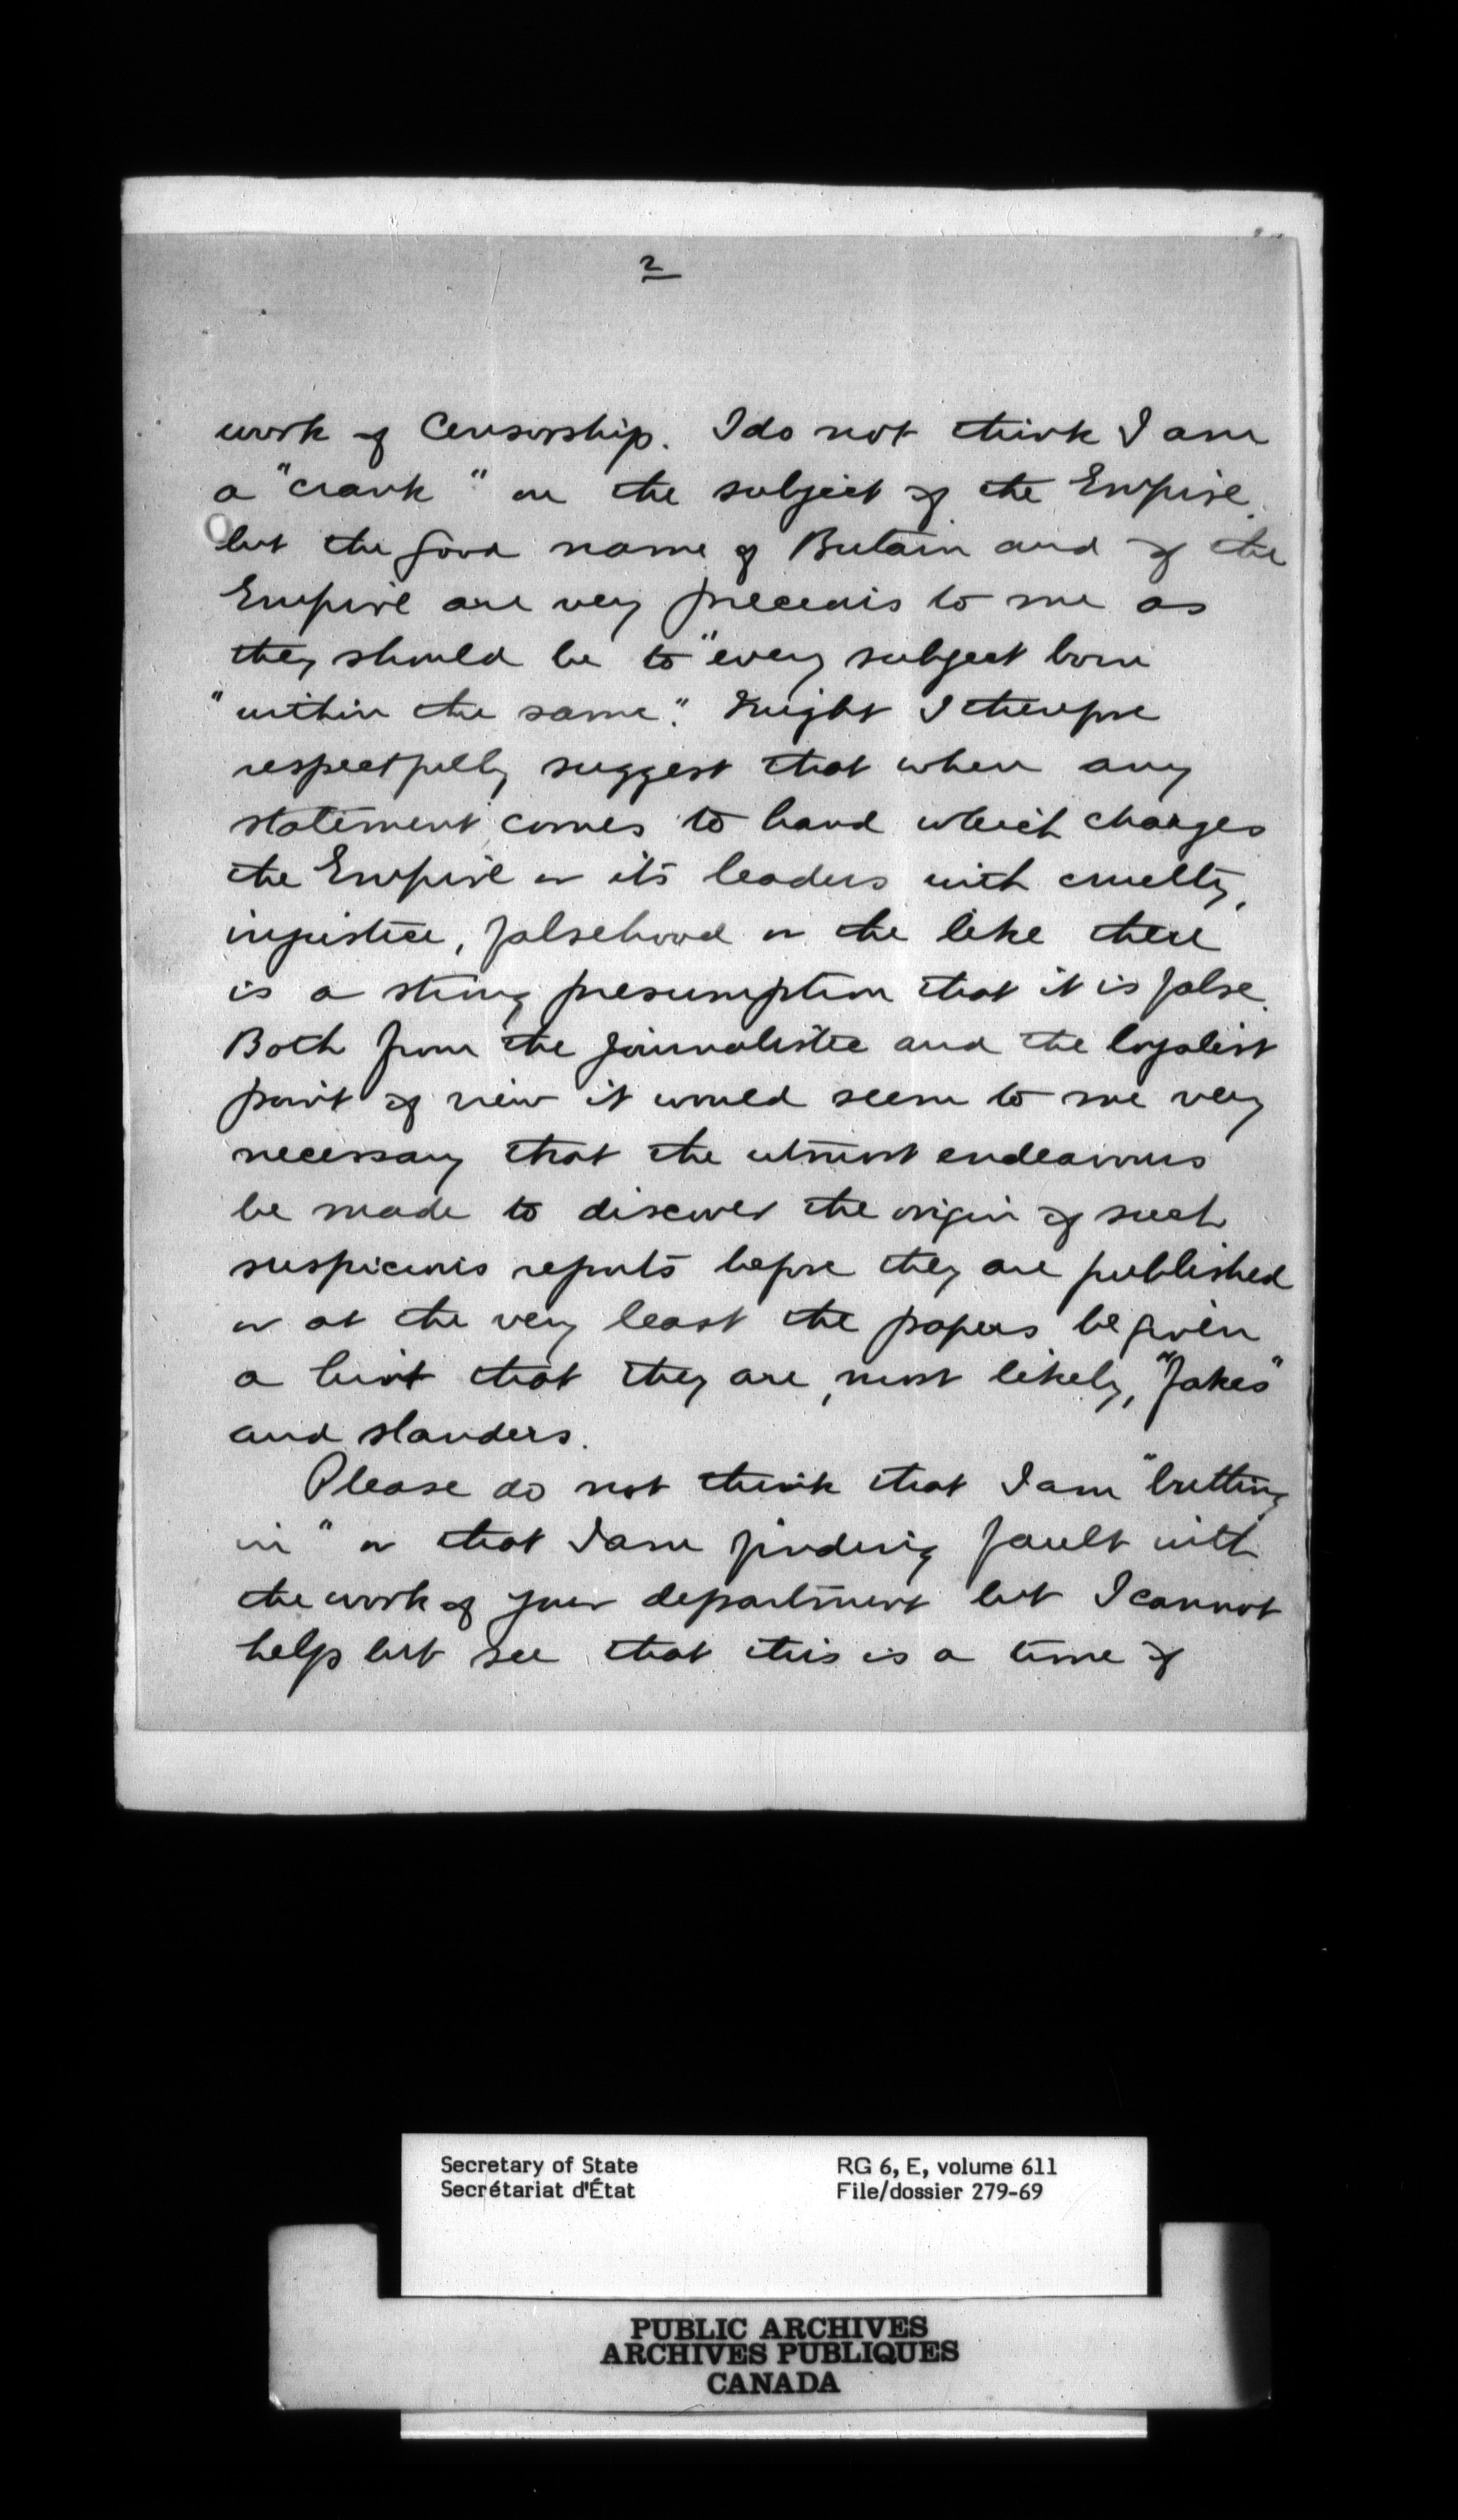 2
work of Censorship. I do not think I am
a "crank" on the subject of the Empire.
but the good name of Britain and of the
Empire are very precious to me as
they should be to "every subject born
"within the same." Might I therefore
respectfully suggest that when any
statement comes to hand which charges
the Empire or its leaders with cruelty,
injustice, falsehood or the like there
is a strong presumption that it is false.
Both from the journalistic and the loyalist
point of view it would seem to me very
necessary that the utmost endeavours
be made to discover the origin of such
suspicious reports before they are published
or at the very least the papers be given
a hint that they are, most likely, "fakes"
and slanders.
Please do not think that I am "butting
in" or that I am finding fault with
the work of your department but I cannot
help but see that this is a time of
Secretary of State RG 6, E, volume 611
Secrétariat d'État File/dossier 279-69
PUBLIC ARCHIVES
ARCHIVES PUBLIQUES
CANADA